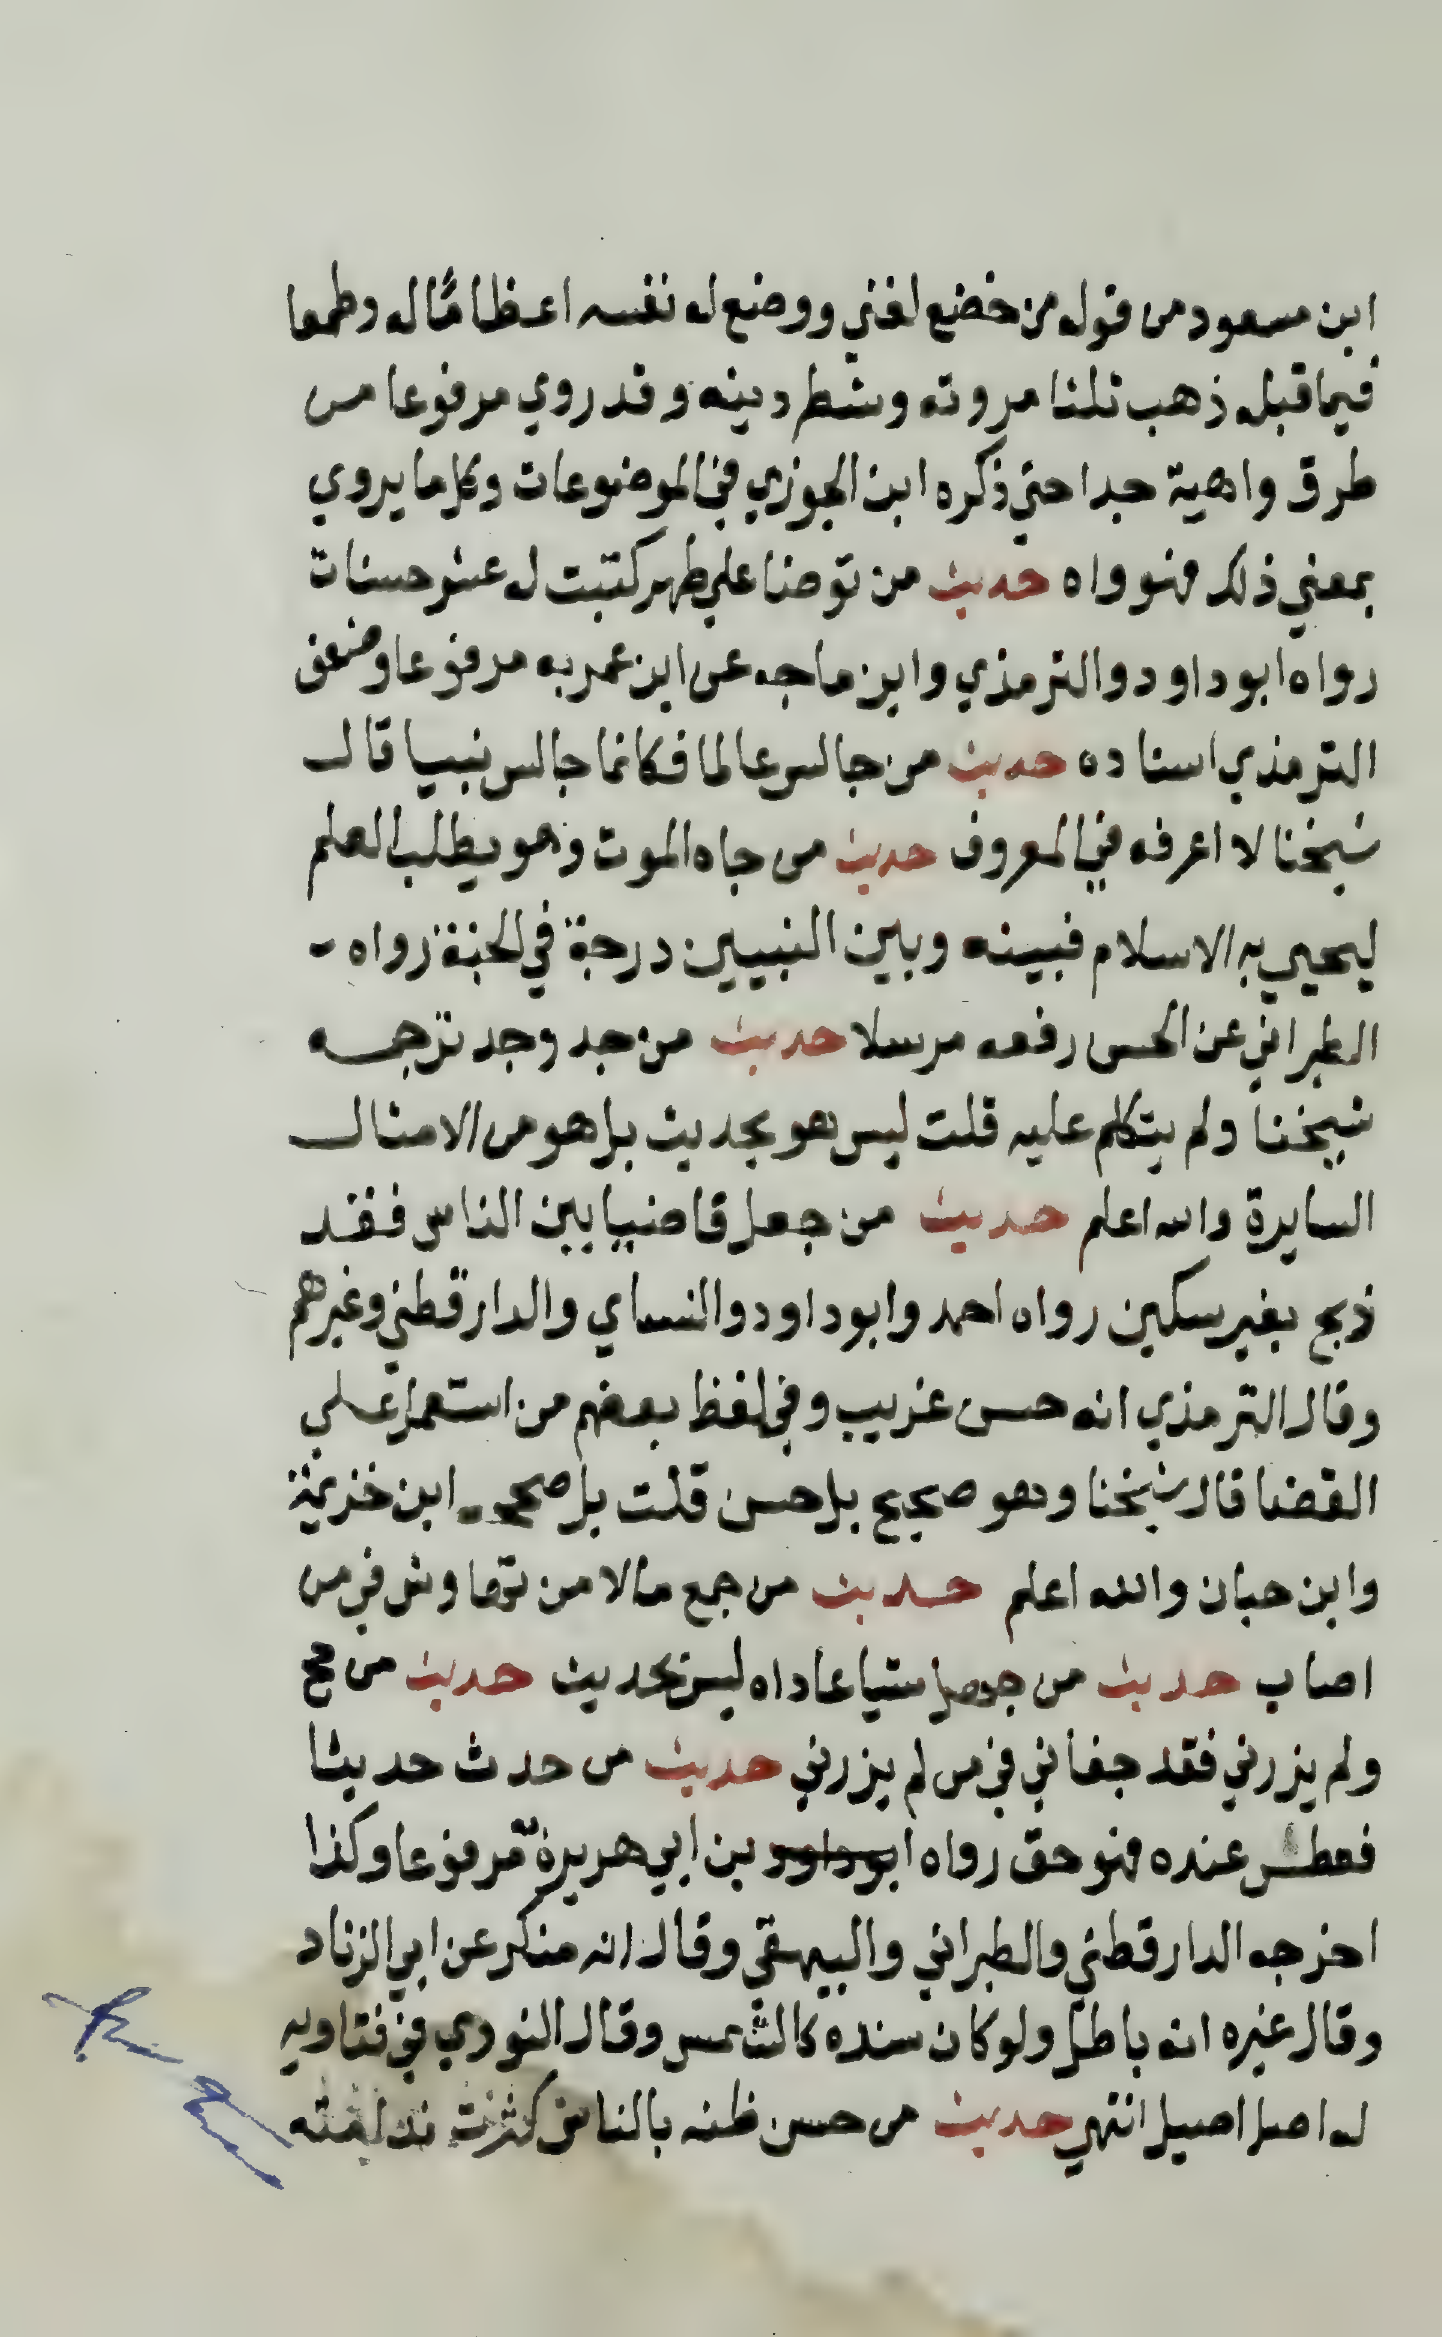 ابن مسعود من قوله من خضع لغني ووضع له نفسه اعظاما له وطمعا
فيما قبله ذهب ثلثا مروته وشطر دينه وقد روي مرفوعا من
طرق واهية جدا حتي ذكره ابن الجوزي في الموضوعات وكل ما يروي
بمعني ذلك فهو واه حديث من توضا علي طهر كتبت له عشر حسنات
رواه ابو داود والترمذي وابن ماجه عن ابن عمر به مرفوعا وضعف
الترمذي اسناده حديث من جالس عالما فكانما جالس نبيا قال
شيخنا لا اعرفه في المعروف حديث من جاه الموت وهو يطلب العلم
ليحيي به الاسلام فبينه وبين النبيين درجة في الجنة رواه
الطبراني عن الحسن رفعه مرسلا حديث من جد وجد ترجمه
شيخنا ولم يتكلم عليه قلت ليس هو بحديث بل هو من الامثال
السايرة والله اعلم حديث من جعل قاضيا بين الناس فقد
ذبح بغير سكين رواه احمد وابو داود والنساي والدارقطني وغيرهم
وقال الترمذي انه حسن غريب وفي لفظ بعضهم من استعمل علي
القضا قال شيخنا وهو صحيح بل حسن قلت بل صححه ابن خزيمة
وابن حبان والله اعلم حديث من جمع مالا من تهاوش في من
اصاب حديث من جهل شيا عاداه ليس بحديث حديث من حج
ولم يزرني فقد جفاني في من لم يزرني حديث من حدث حديثا
فعطس عنده فهو حق رواه ابو داود بن ابي هريرة مرفوعا وكذا
اخرجه الدارقطني والطبراني والبيهقي وقال انه منكر عن ابي الزناد
وقال غيره انه باطل ولو كان سنده كالشمس وقال النووي في فتاويه
له اصل اصيل انتهي حديث من حسن ظنه بالناس كثرت ندامته